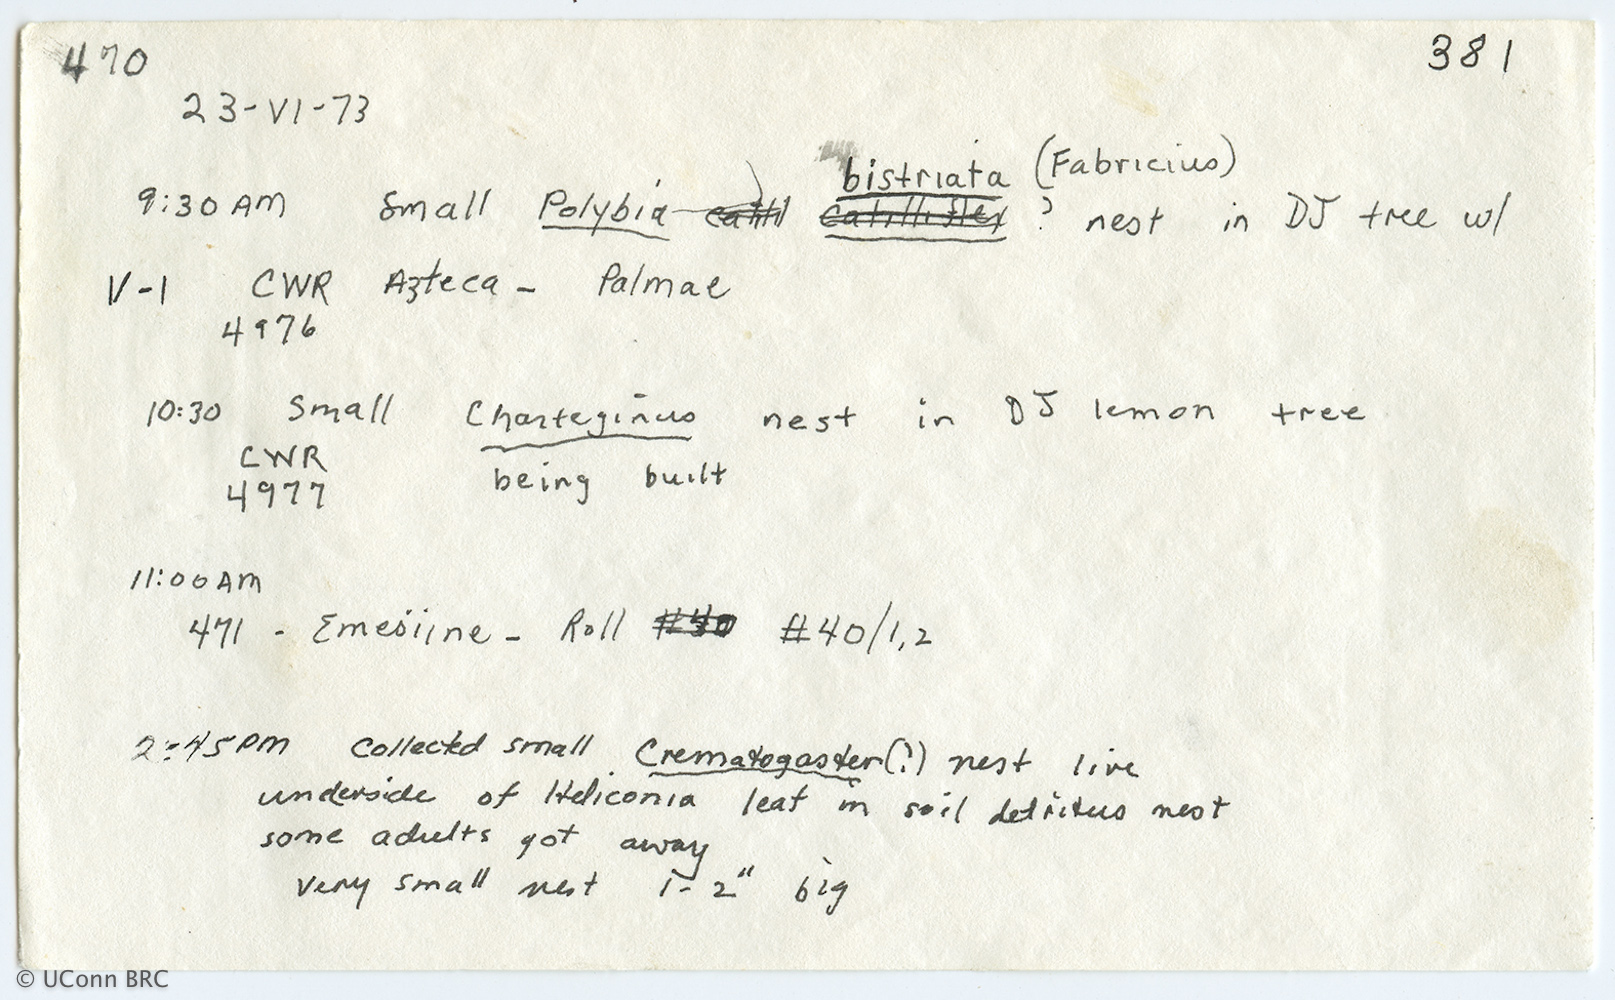 470
381
23-VI-73
bistriata (Fabricius)
9:30 AM Small Polybia catill catillifex ? nest in DJ tree w/
V-1 CWR Azteca - Palmae
4976
10:30 Small Charteginus nest in DJ lemon tree
CWR being built
4977
11:00 AM
471 - Emesiine - Roll #40 #40/1,2
2:45 PM Collected small Crematogaster(?) nest live
underside of Heliconia leaf in soil detritus nest
some adults got away
very small nest 1-2" big
© UConn BRC